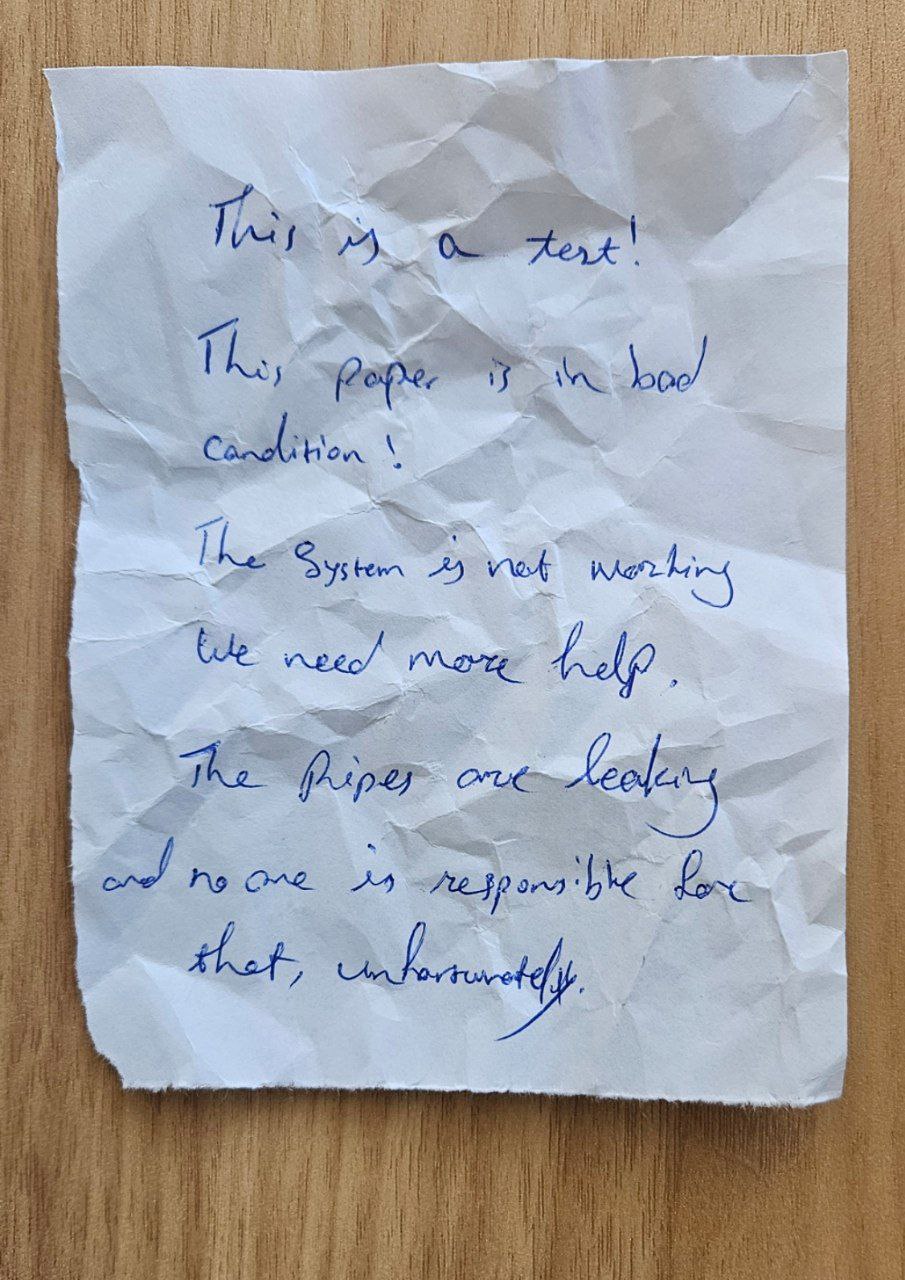 This is a test!
This paper is in bad
condition!
The System is not working
We need more help.
The Pipes are leaking
and no one is responsible for
that, unfortunately.